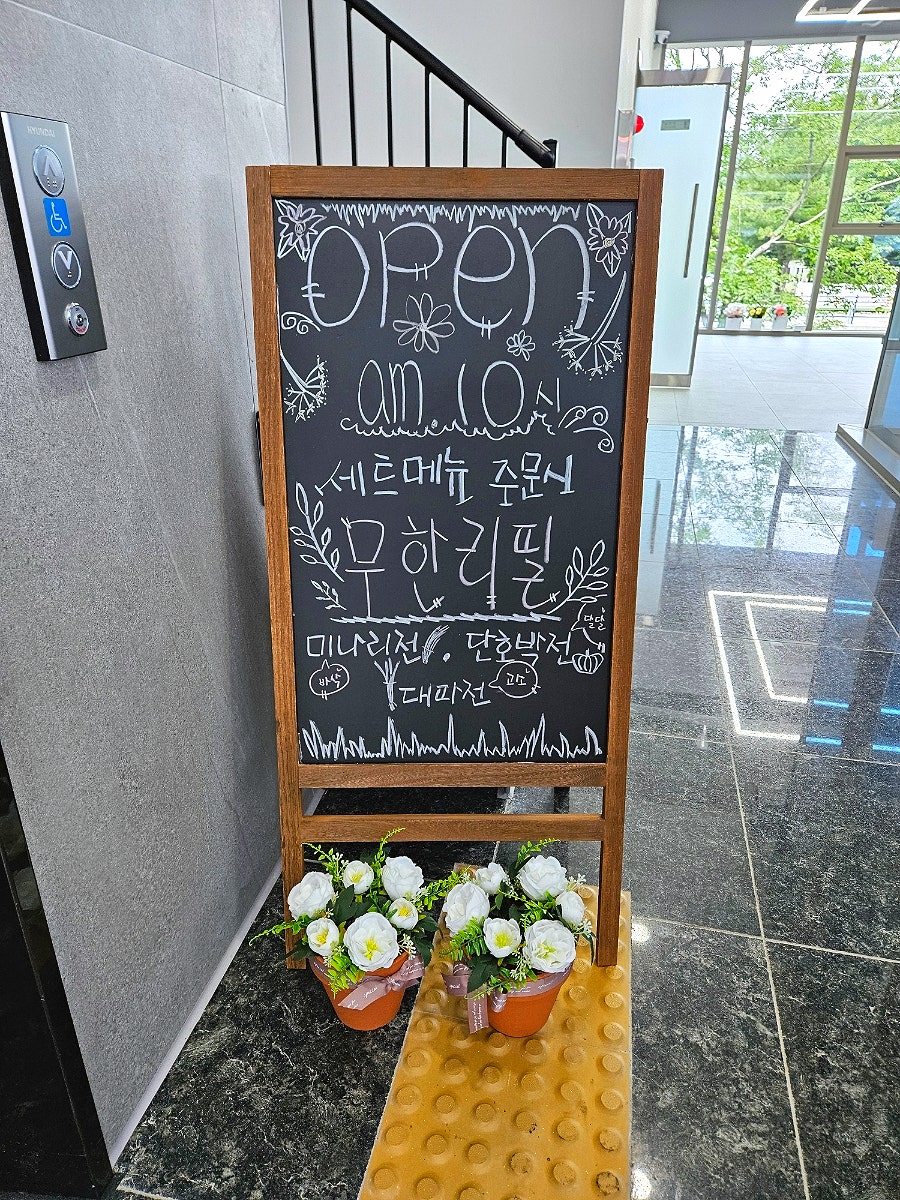 HYUNDAI
open
am.10시
세트메뉴 주문시
무한리필
달달
미나리전, 단호박전
바삭
대파전
고소